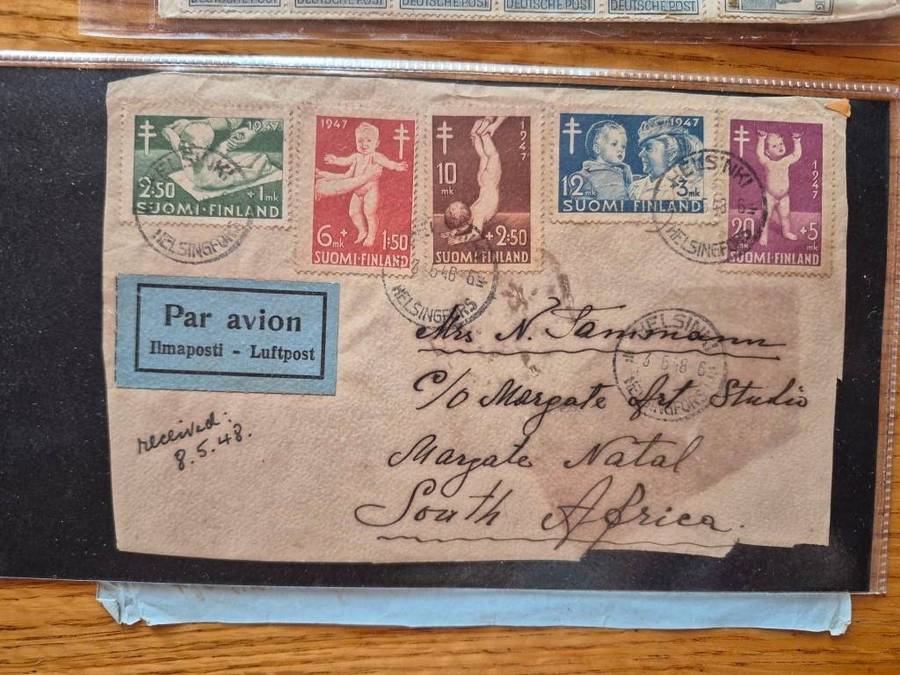 DEUTSCHE POST DEUTSCHE POST DEUTSCHE POST DEUTSCHE POST DEUTSCHE POST
1947
2:50
+1 mk
SUOMI·FINLAND
1947
6 mk
+1:50
SUOMI·FINLAND
1947
10 mk
+2:50
SUOMI·FINLAND
1947
12 mk
+3 mk
SUOMI·FINLAND
1947
20 mk
+5
SUOMI·FINLAND
HELSINKI
HELSINGFORS
6 48-6
HELSINGFORS
HELSINKI
48 6
HELSINGFORS
Par avion
Ilmaposti - Luftpost
HELSINKI
3 6 48 6
HELSINGFORS
Mrs N. Tammann
c/o Margate Art Studio
Margate Natal
South Africa.
received:
8.5.48.